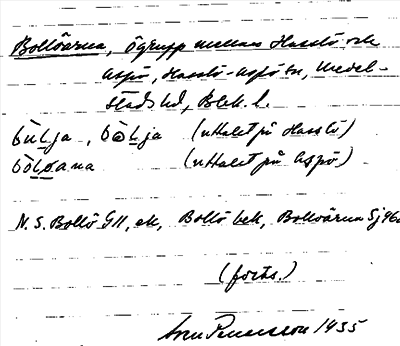 Bollöarna, ögrupp mellan Hasslö och
Aspö, Hasslö-Aspö sn, Medel-
stads hd, Blek. l.
bùLja, bòLja (uttalet på Hasslö)
bòLoana (uttalet på Aspö)
N. S. Bollö G11, ek, Bollö bek, Bollöarna Sj
(forts.)
Sven Benson 1935